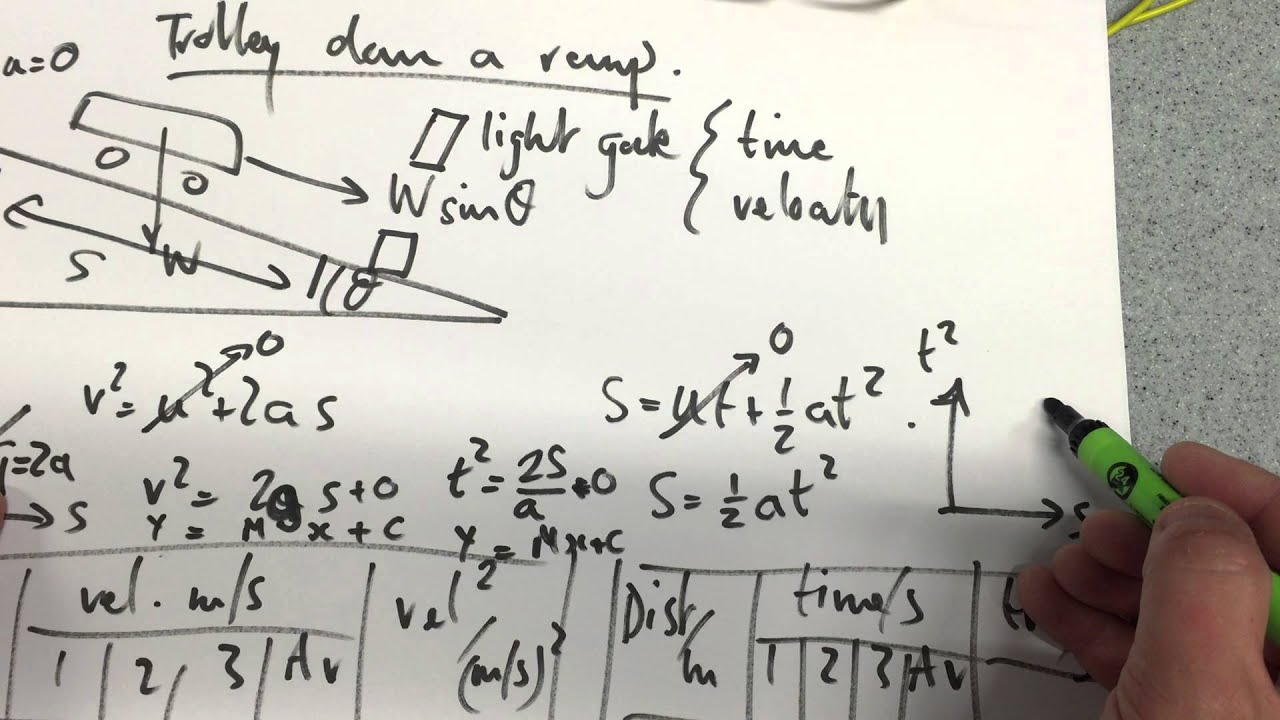 Trolley down a ramp.
a=0
light gate { time
{ velocity
W sinθ
S W θ
v² = u² + 2as
0
S = ut + ½at².
0
t²
=2a
v² = 2a s + 0
t² = 2S/a + 0
S = ½at²
S
Y = M x + C
Y = Mx + C
S
vel. m/s
vel²
(m/s)²
Dist/m
time/s
1 2 3 Av
1 2 3 Av